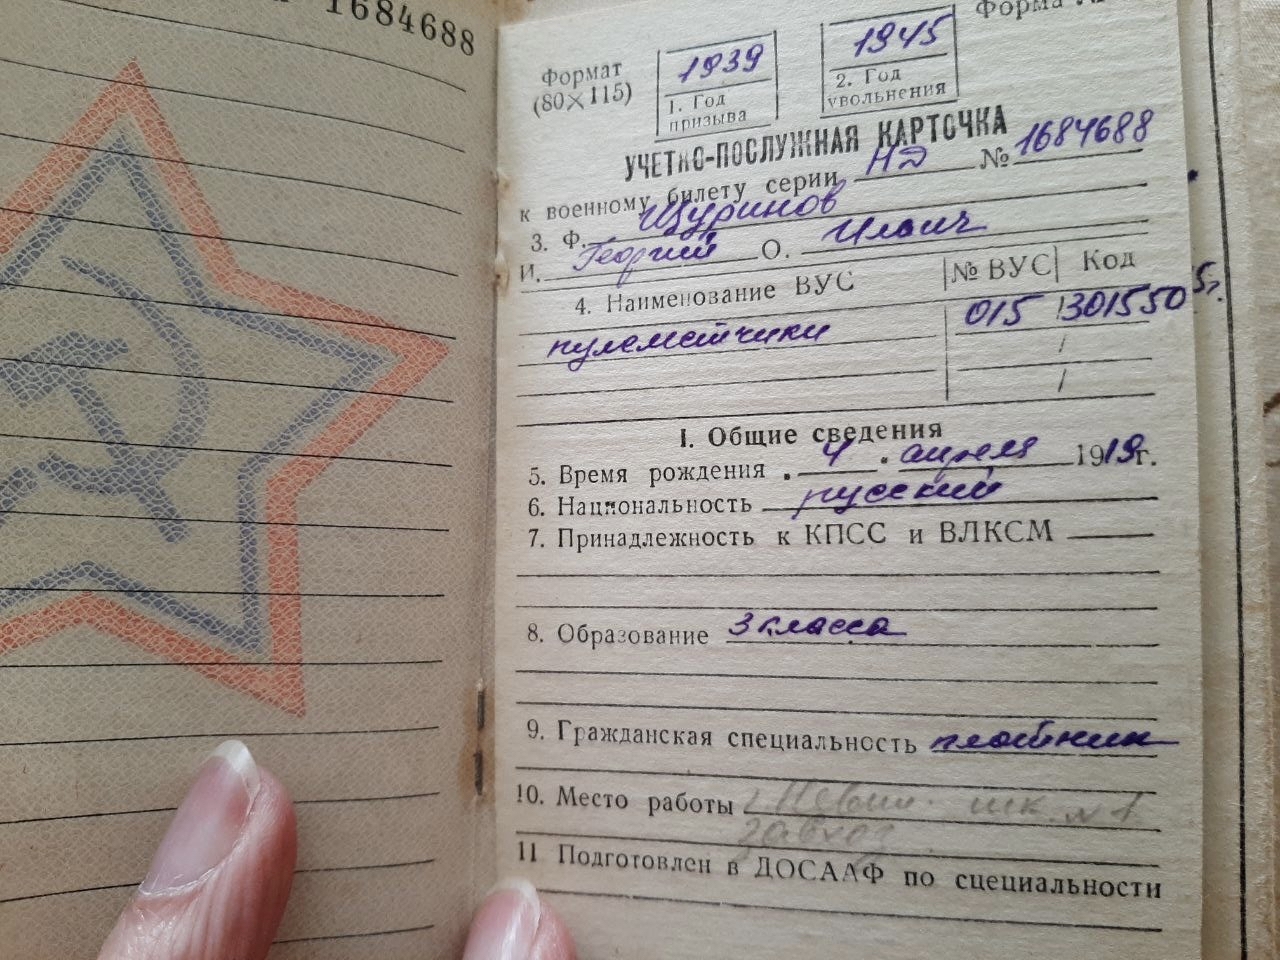 1684688
Формат
(80×115)
1939
1. Год
призыва
1945
2. Год
увольнения
Форма
УЧЕТНО-ПОСЛУЖНАЯ КАРТОЧКА
к военному билету серии НД № 1684688
3. Ф. Щуринов
И. Георгий О. Ильич
4. Наименование ВУС № ВУС Код
пулеметчики 015 301550
I. Общие сведения
5. Время рождения 4 апреля 1919г.
6. Национальность русский
7. Принадлежность к КПСС и ВЛКСМ
8. Образование 3 класса
9. Гражданская специальность плотник
10. Место работы шк. №1
завхоз
11 Подготовлен в ДОСААФ по специальности